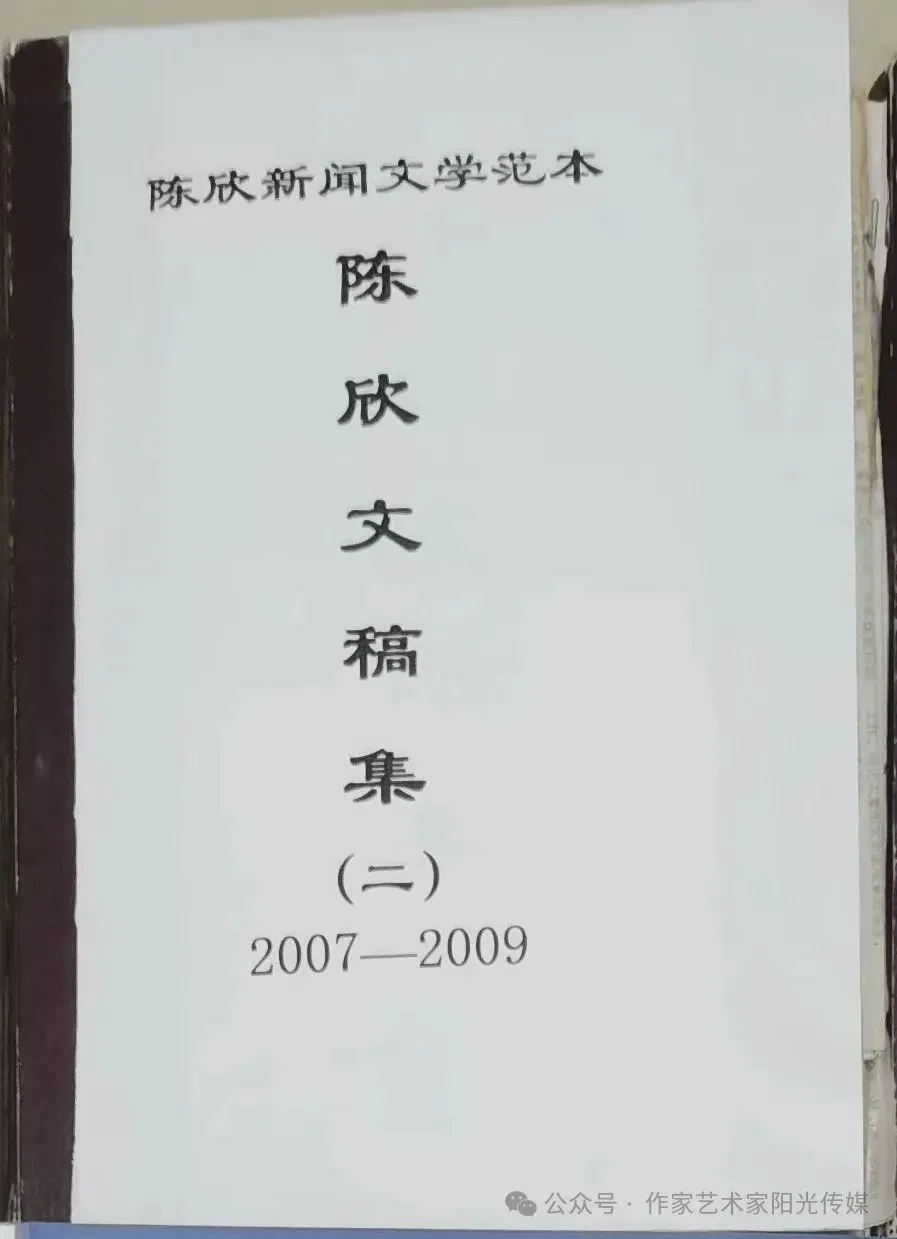 陈欣新闻文学范本
陈
欣
文
稿
集
(二)
2007—2009
公众号·作家艺术家阳光传媒